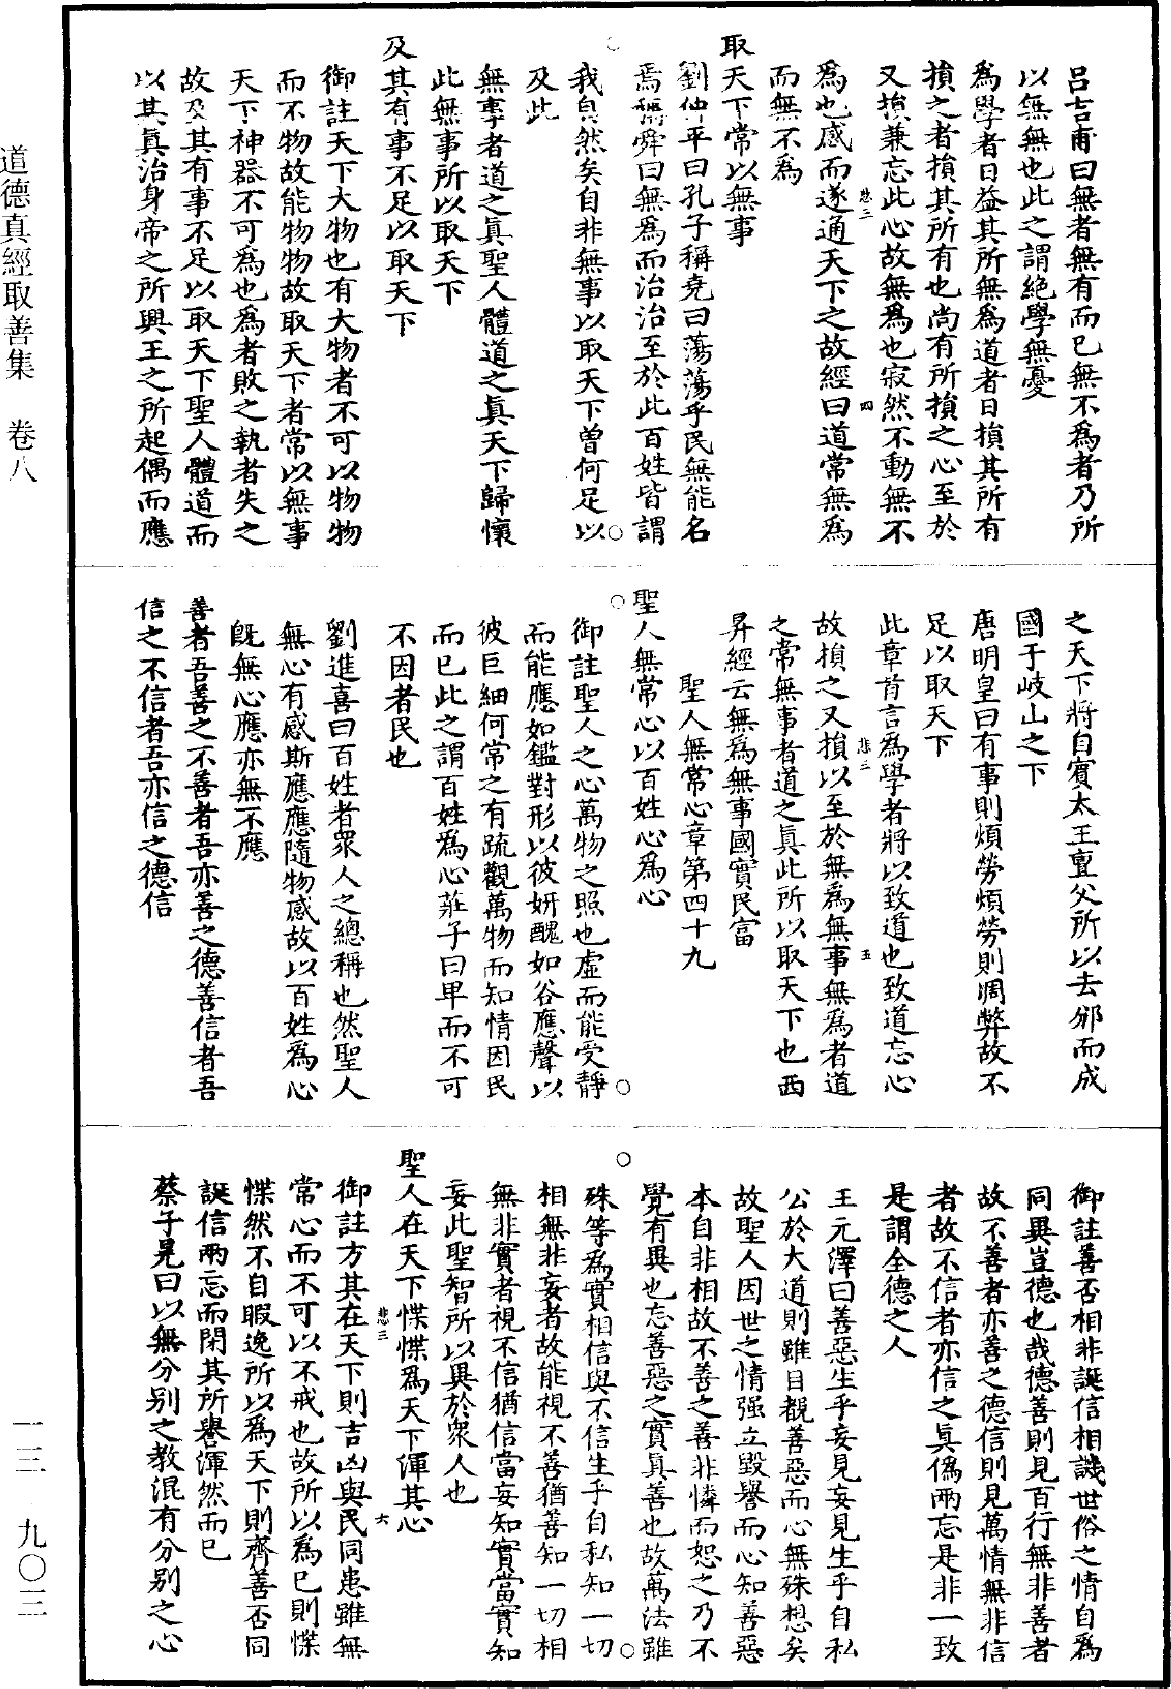 呂吉甫曰無者無有而已無不為者乃所
以無無也此之謂絕學無憂
為學者日益其所無為道者日損其所有
損之者損其所有也尚有所損之心至於
又損兼忘此心故無為也寂然不動無不
悲三 四
為也感而遂通天下之故經曰道常無為
而無不為
取天下常以無事
劉仲平曰孔子稱堯曰蕩蕩乎民無能名
焉稱舜曰無為而治治至於此百姓皆謂
我自然矣自非無事以取天下曾何足以
及此
無事者道之真聖人體道之真天下歸懷
此無事所以取天下
及其有事不足以取天下
御註天下大物也有大物者不可以物物
而不物故能物物故取天下者常以無事
天下神器不可為也為者敗之執者失之
故及其有事不足以取天下聖人體道而
以其真治身帝之所興王之所起偶而應
之天下將自賓太王亶父所以去邠而成
國于岐山之下
唐明皇曰有事則煩勞煩勞則凋弊故不
足以取天下
此章首言為學者將以致道也致道忘心
悲三 五
故損之又損以至於無為無事無為者道
之常無事者道之真此所以取天下也西
昇經云無為無事國實民富
聖人無常心章第四十九
聖人無常心以百姓心為心
御註聖人之心萬物之照也虛而能受靜
而能應如鑑對形以彼妍醜如谷應聲以
彼巨細何常之有疏觀萬物而知情因民
而已此之謂百姓為心莊子曰卑而不可
不因者民也
劉進喜曰百姓者眾人之總稱也然聖人
無心有感斯應應隨物感故以百姓為心
既無心應亦無不應
善者吾善之不善者吾亦善之德善信者吾
信之不信者吾亦信之德信
御註善否相非誕信相譏世俗之情自為
同異豈德也哉德善則見百行無非善者
故不善者亦善之德信則見萬情無非信
者故不信者亦信之真偽兩忘是非一致
是謂全德之人
王元澤曰善惡生乎妄見妄見生乎自私
公於大道則雖目覩善惡而心無殊想矣
故聖人因世之情强立毀譽而心知善惡
本自非相故不善之善非憐而恕之乃不
覺有異也忘善惡之實真善也故萬法雖
殊等為實相信與不信生乎自私知一切
相無非妄者故能視不善猶善知一切相
無非實者視不信猶信當妄知實當實知
妄此聖智所以異於眾人也
聖人在天下惵惵為天下渾其心
悲三 六
御註方其在天下則吉凶與民同患雖無
常心而不可以不戒也故所以為己則惵
惵然不自暇逸所以為天下則齊善否同
誕信兩忘而閉其所譽渾然而已
蔡子晃曰以無分別之教混有分別之心
道德真經取善集 卷八
一三 九〇三